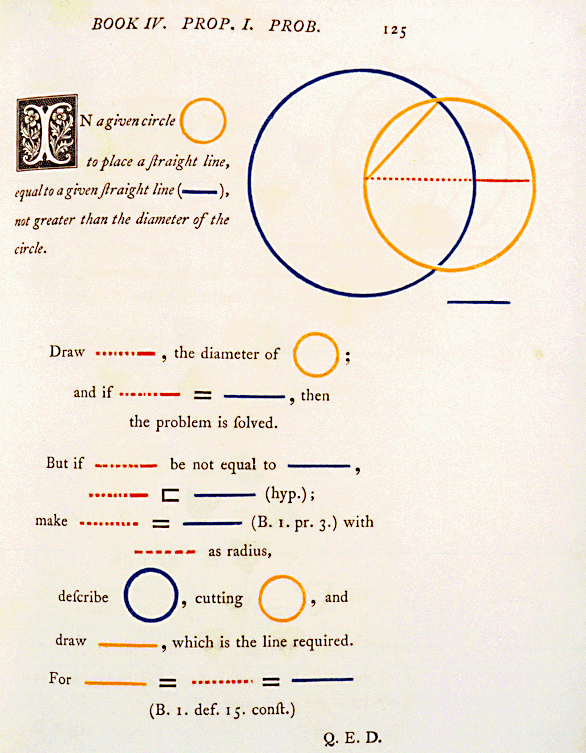 BOOK IV. PROP. I. PROB.
125
IN a given circle
to place a ſtraight line,
equal to a given ſtraight line ( ),
not greater than the diameter of the
circle.
Draw , the diameter of ;
and if = , then
the problem is ſolved.
But if be not equal to ,
⊏ (hyp.);
make = (B. 1. pr. 3.) with
as radius,
deſcribe , cutting , and
draw , which is the line required.
For = =
(B. 1. def. 15. conſt.)
Q. E. D.